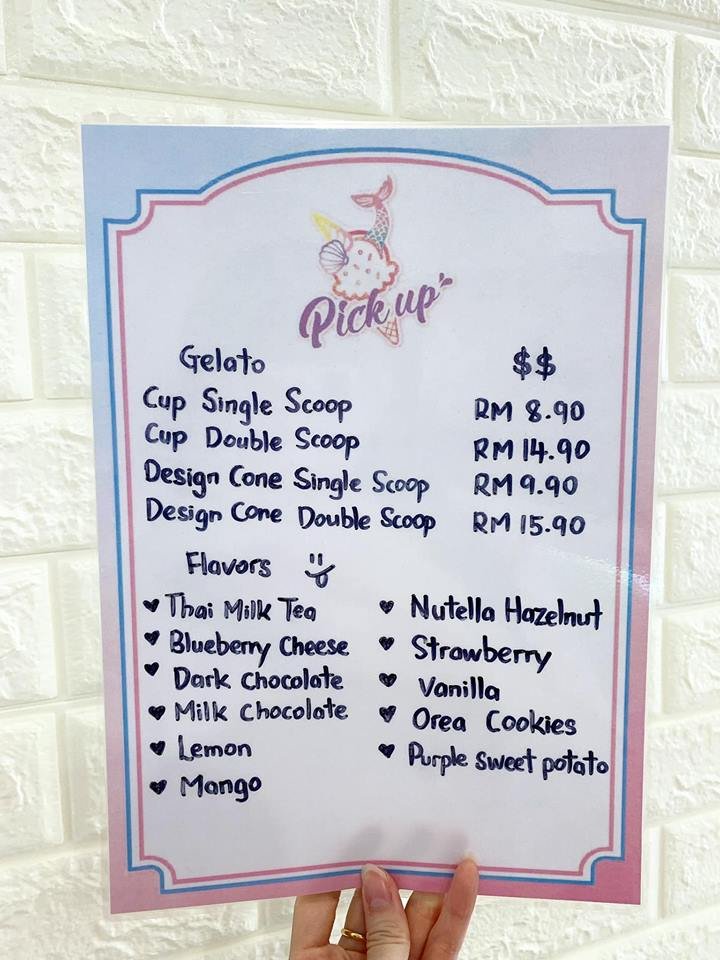 Pick up
Gelato $$
Cup Single Scoop RM 8.90
Cup Double Scoop RM 14.90
Design Cone Single Scoop RM 9.90
Design Cone Double Scoop RM 15.90
Flavors
Thai Milk Tea
Blueberry Cheese
Dark Chocolate
Milk Chocolate
Lemon
Mango
Nutella Hazelnut
Strawberry
Vanilla
Orea Cookies
Purple sweet potato